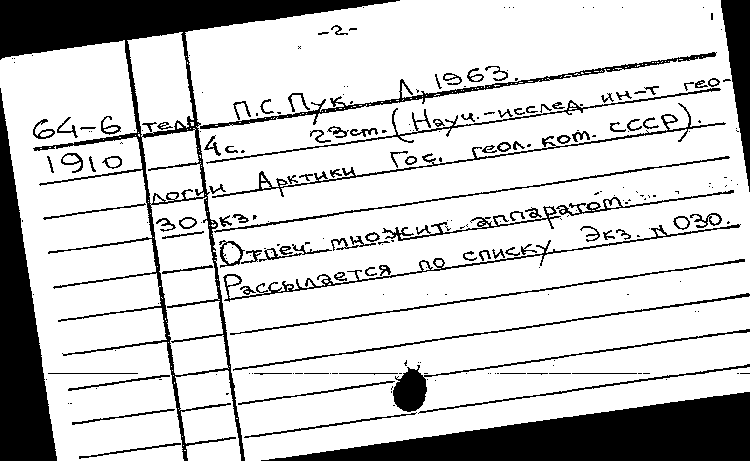 -2-
64-6 тель П.С. Пук. Л., 1963.
1910 4с. 23см. (Науч.-исслед. ин-т гео-
логии Арктики Гос. геол. ком. СССР).
30 экз.
Отпеч. множит. аппаратом.
Рассылается по списку. Экз. N 030.